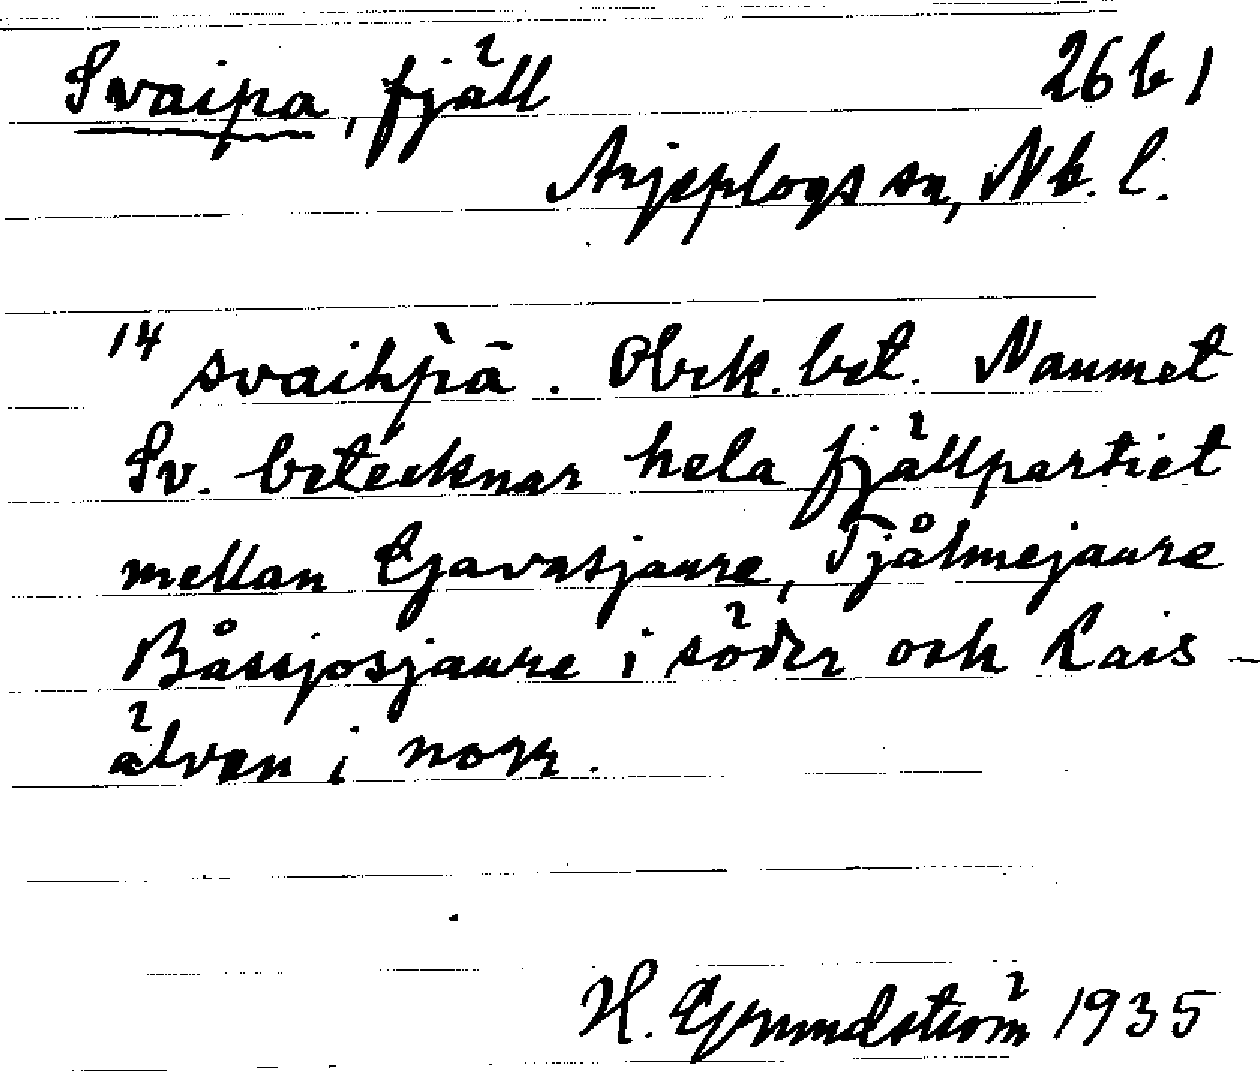 Svaipa, fjäll 26 b 1
Arjeplogs sn, Nb. l.
14 svaihpā̀. Obek. bet. Namnet
Sv. betecknar hela fjällpartiet
mellan Gjavasjaure, Tjålmejaure
Båssjosjaure i söder och Lais-
älven i norr.
H. Grundström 1935